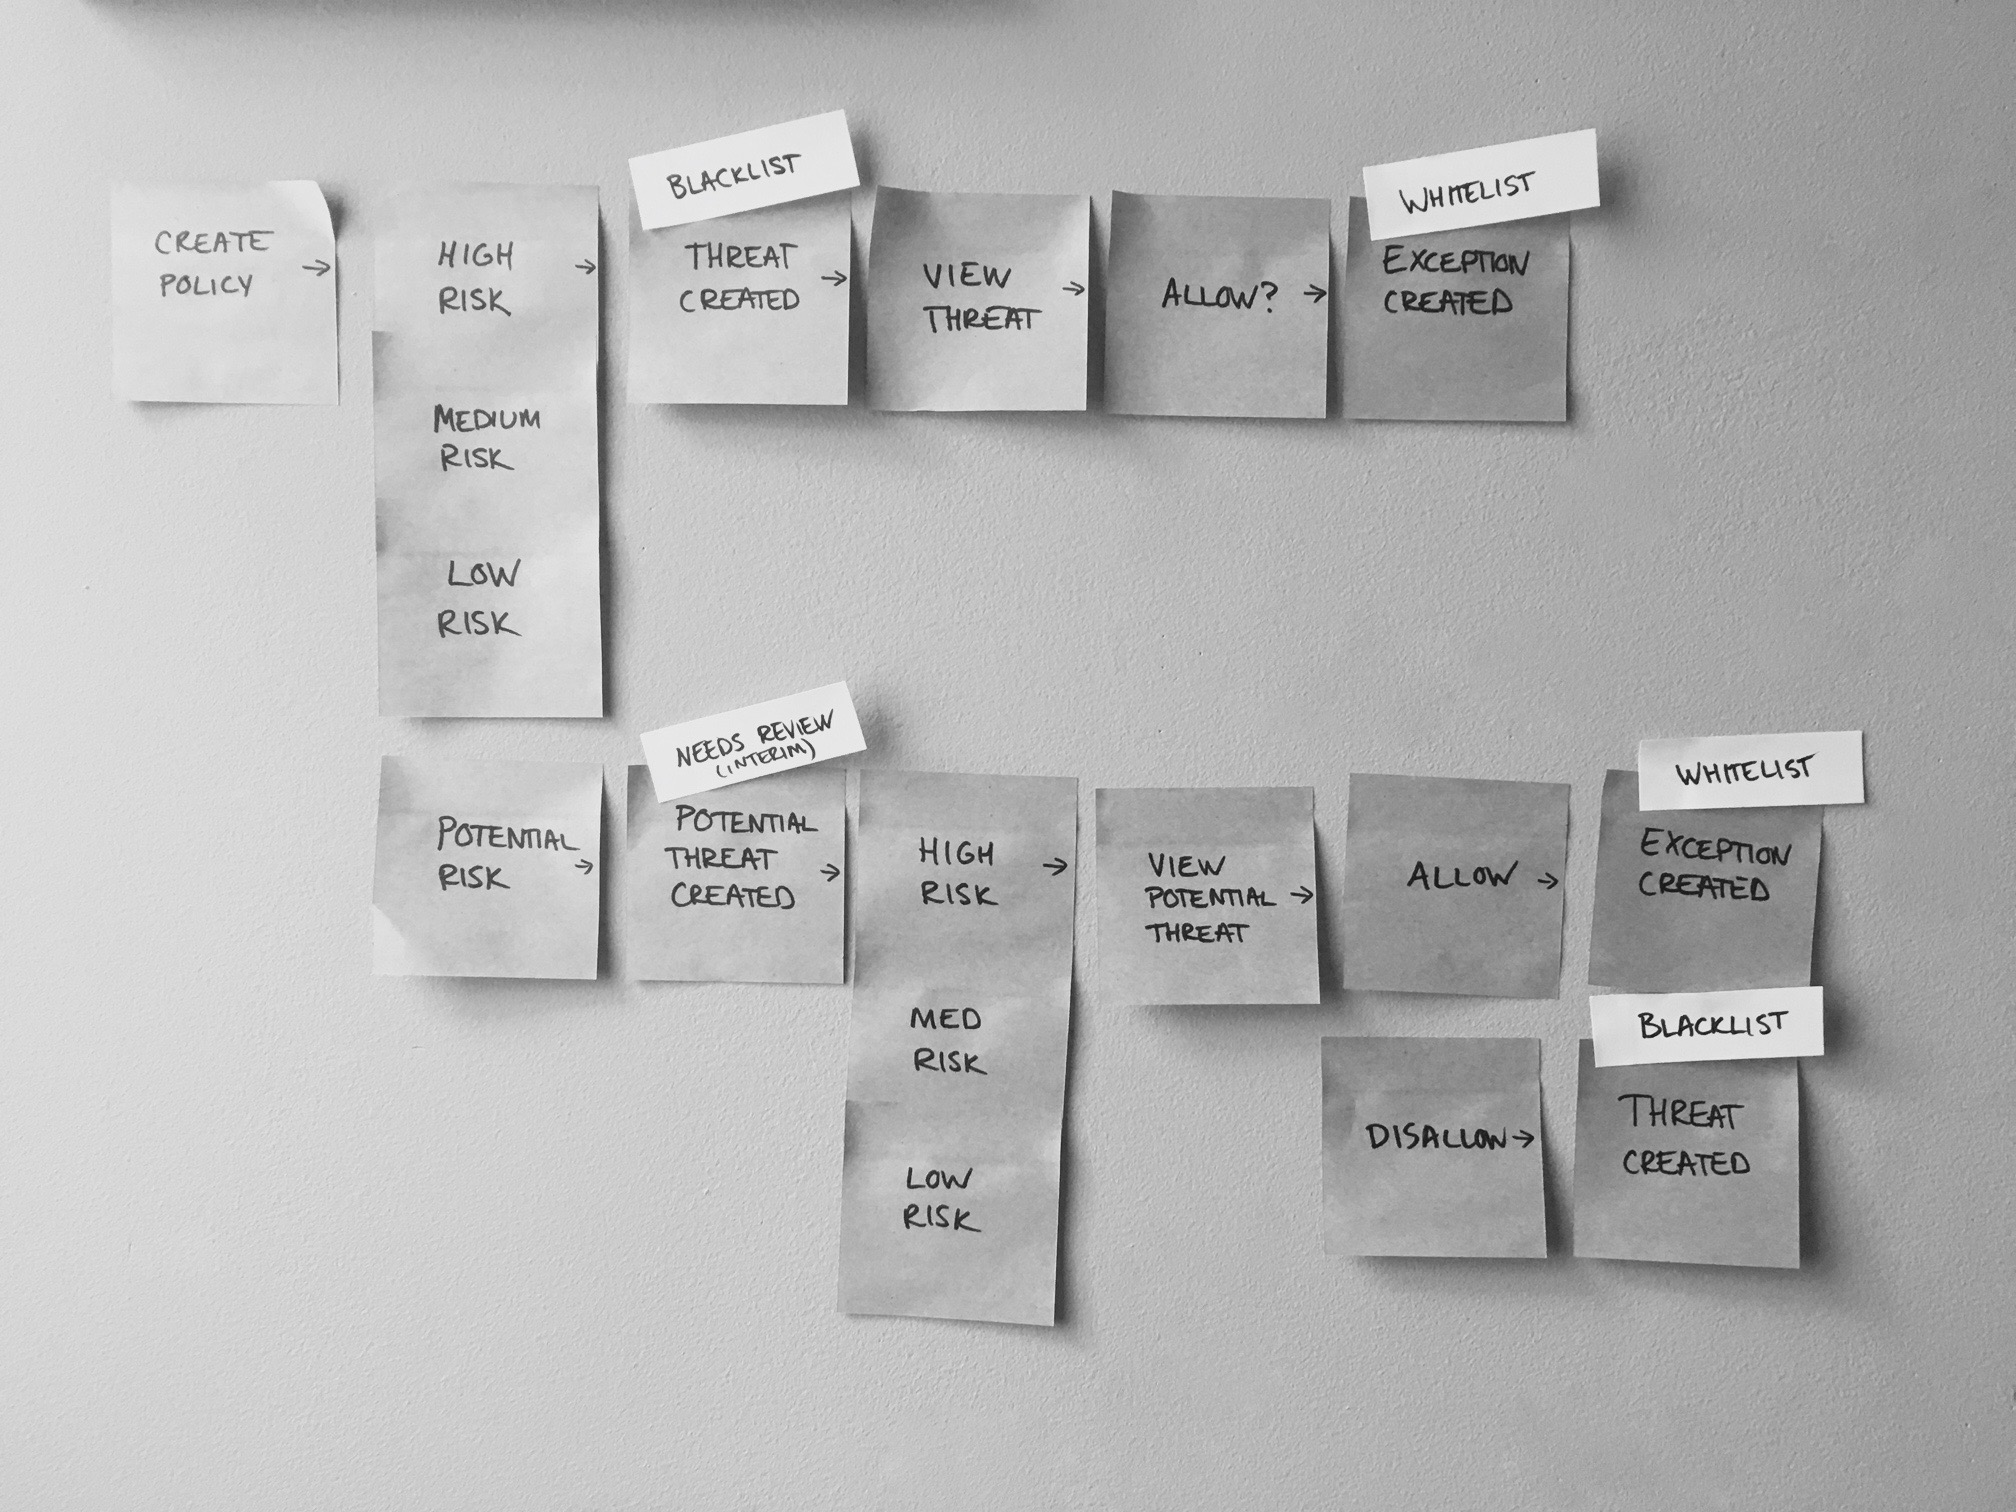 CREATE
POLICY →
HIGH
RISK →
MEDIUM
RISK
LOW
RISK
BLACKLIST
THREAT
CREATED →
VIEW
THREAT →
ALLOW? →
WHITELIST
EXCEPTION
CREATED
POTENTIAL
RISK →
NEEDS REVIEW
(INTERIM)
POTENTIAL
THREAT
CREATED →
HIGH
RISK →
MED
RISK
LOW
RISK
VIEW
POTENTIAL →
THREAT
ALLOW →
WHITELIST
EXCEPTION
CREATED
DISALLOW →
BLACKLIST
THREAT
CREATED